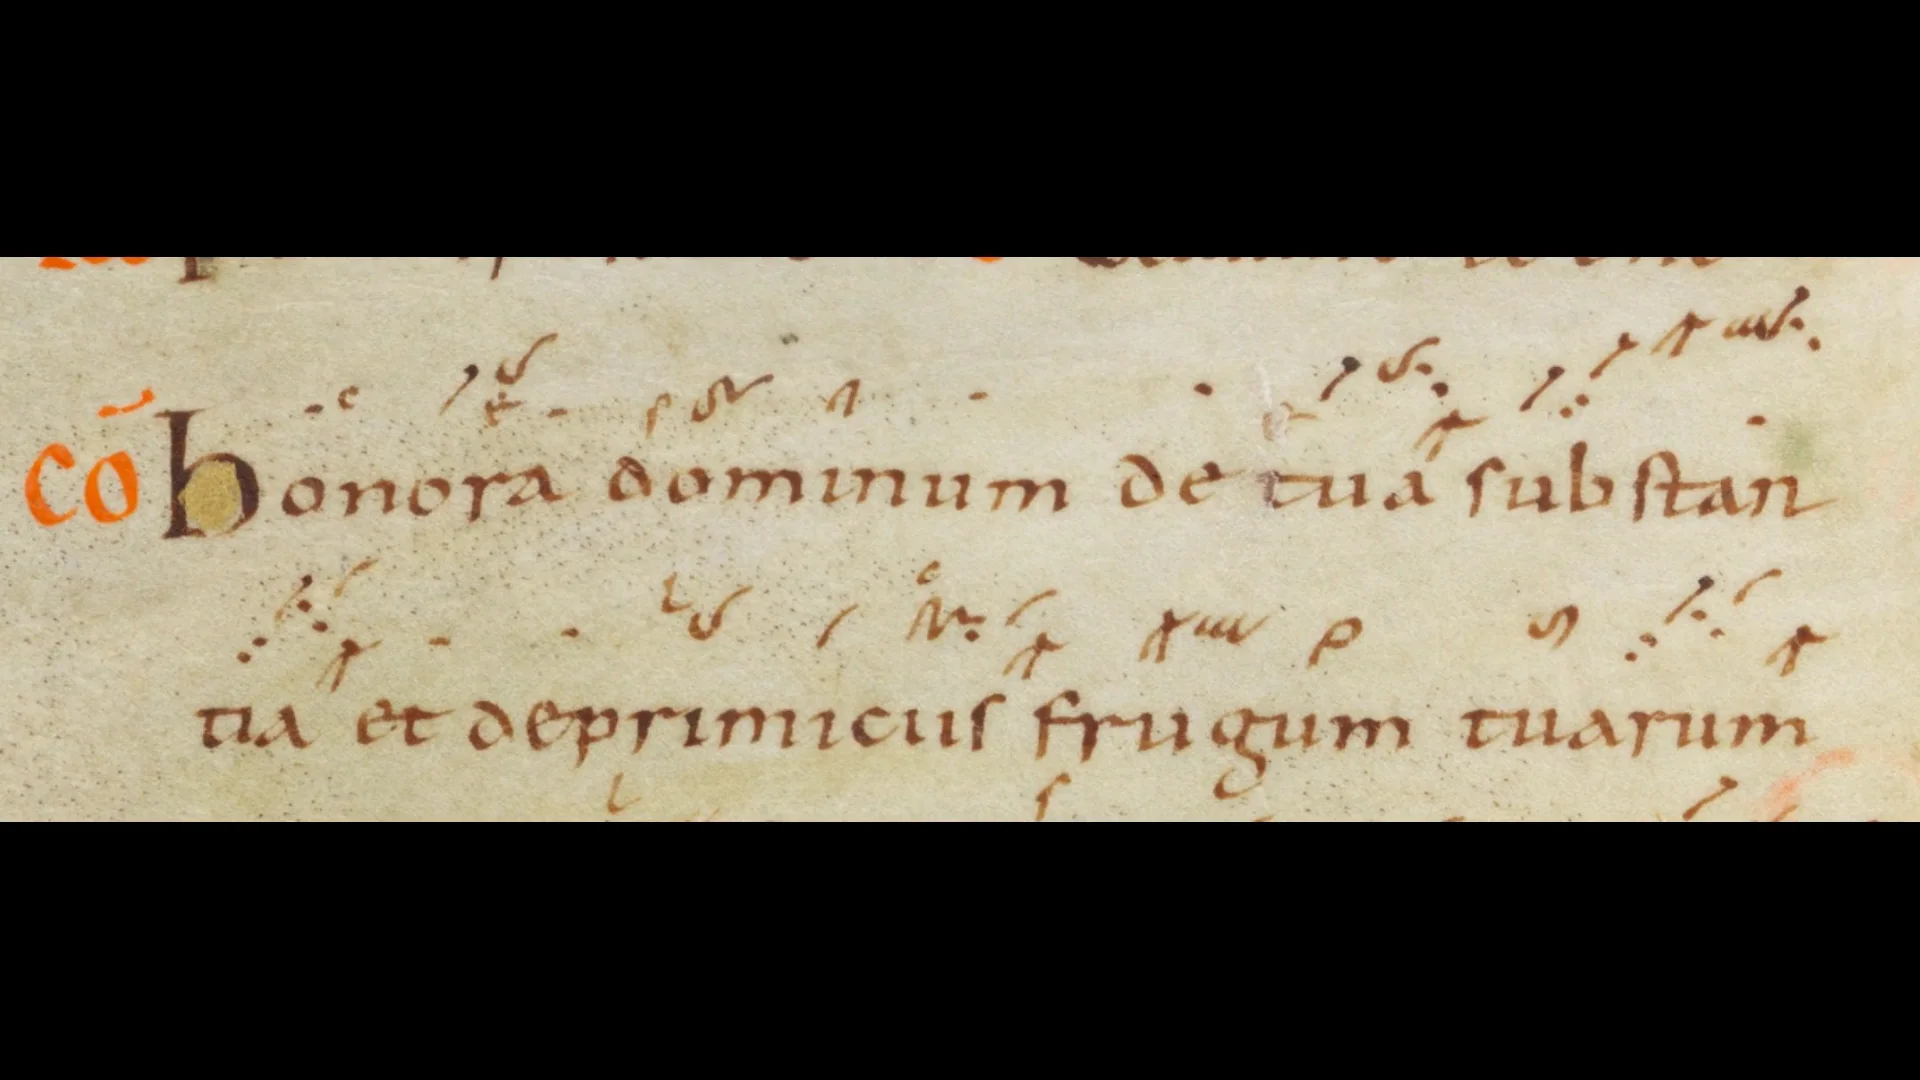 cō honora dominum de tua substan
tia et deprimiciis frugum tuarum